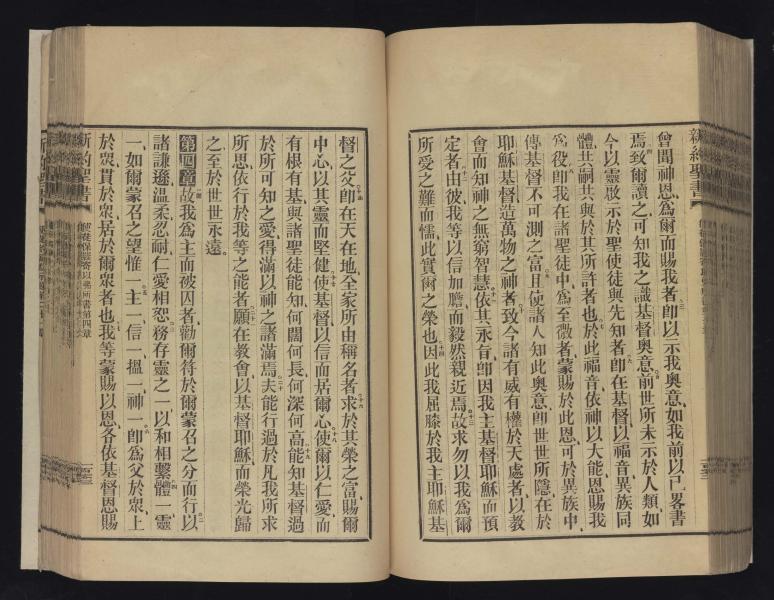 新約聖書
曾聞神恩爲爾而賜我者卽以示我奧意如我前以已畧書
焉致爾讀之可知我之識基督奧意前世所未示於人類如
今以靈啟示於聖使徒與先知者卽在基督以福音異族同
體共嗣共與於其所許者也於此福音依神以大能恩賜我
爲役卽我在諸聖徒中爲至微者蒙賜於此恩可於異族中
傳基督不可測之富且使諸人知此奧意卽世世所隱在於
耶穌基督造萬物之神者致今諸有威有權於天處者以教
會而知神之無窮智慧依其永旨卽因我主基督耶穌而預
定者由彼我等以信加膽而毅然親近焉故求勿以我爲爾
所受之難而懦此實爾之榮也因此我屈膝於我主耶穌基
督之父卽在天在地全家所由稱名者求於其榮之富賜爾
中心以其靈而堅健使基督以信而居爾心使爾以仁愛而
有根有基與諸聖徒能知何闊何長何深何高能知基督過
於所可知之愛得滿以神之諸滿焉夫能行過於凡我所求
所思依行於我等之能者願在教會以基督耶穌而榮光歸
之至於世世永遠
第四章故我爲主而被囚者勸爾待於爾蒙召之分而行以
諸謙遜溫柔忍耐仁愛相恕務存靈之一以和相繫體一靈
一如爾蒙召之望惟一主一信一搵一神一卽爲父於眾上
於眾貫於眾居於爾眾者也我等蒙賜以恩各依基督恩賜
新約聖書
使徒保羅寄以弗所書第四章